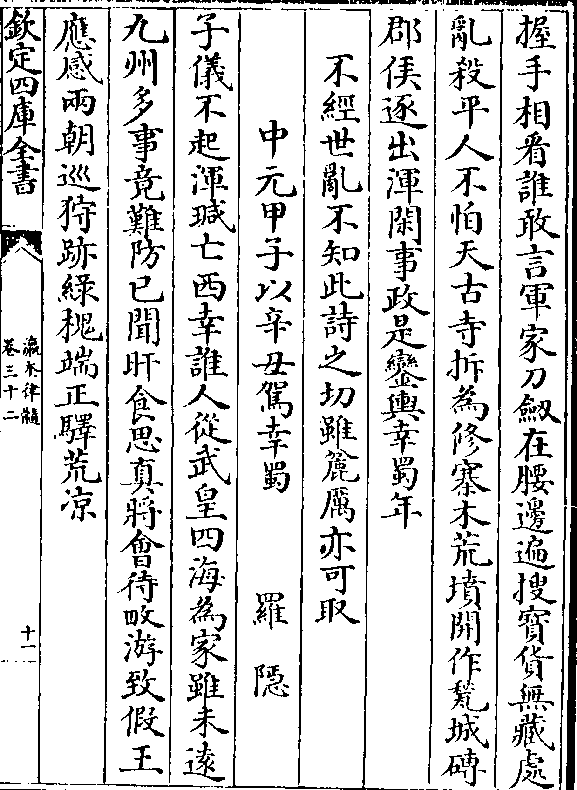 握手相看誰敢言軍家刀劒在腰邊遍搜寳貨無藏處
亂殺平人不怕天古寺拆為修寨木荒墳開作甃城磚
郡侯逐出渾閑事政是鑾輿幸蜀年
不經世亂不知此詩之切雖麄厲亦可取
中元甲子以辛丑駕幸蜀 羅隱
子儀不起渾瑊亡西幸誰人從武皇四海為家雖未逺
九州多事竟難防已聞旰食思真將會待畋游致假王
應感兩朝巡狩跡綠槐端正驛荒凉
欽定四庫全書
瀛奎律髓
卷三十二
十一